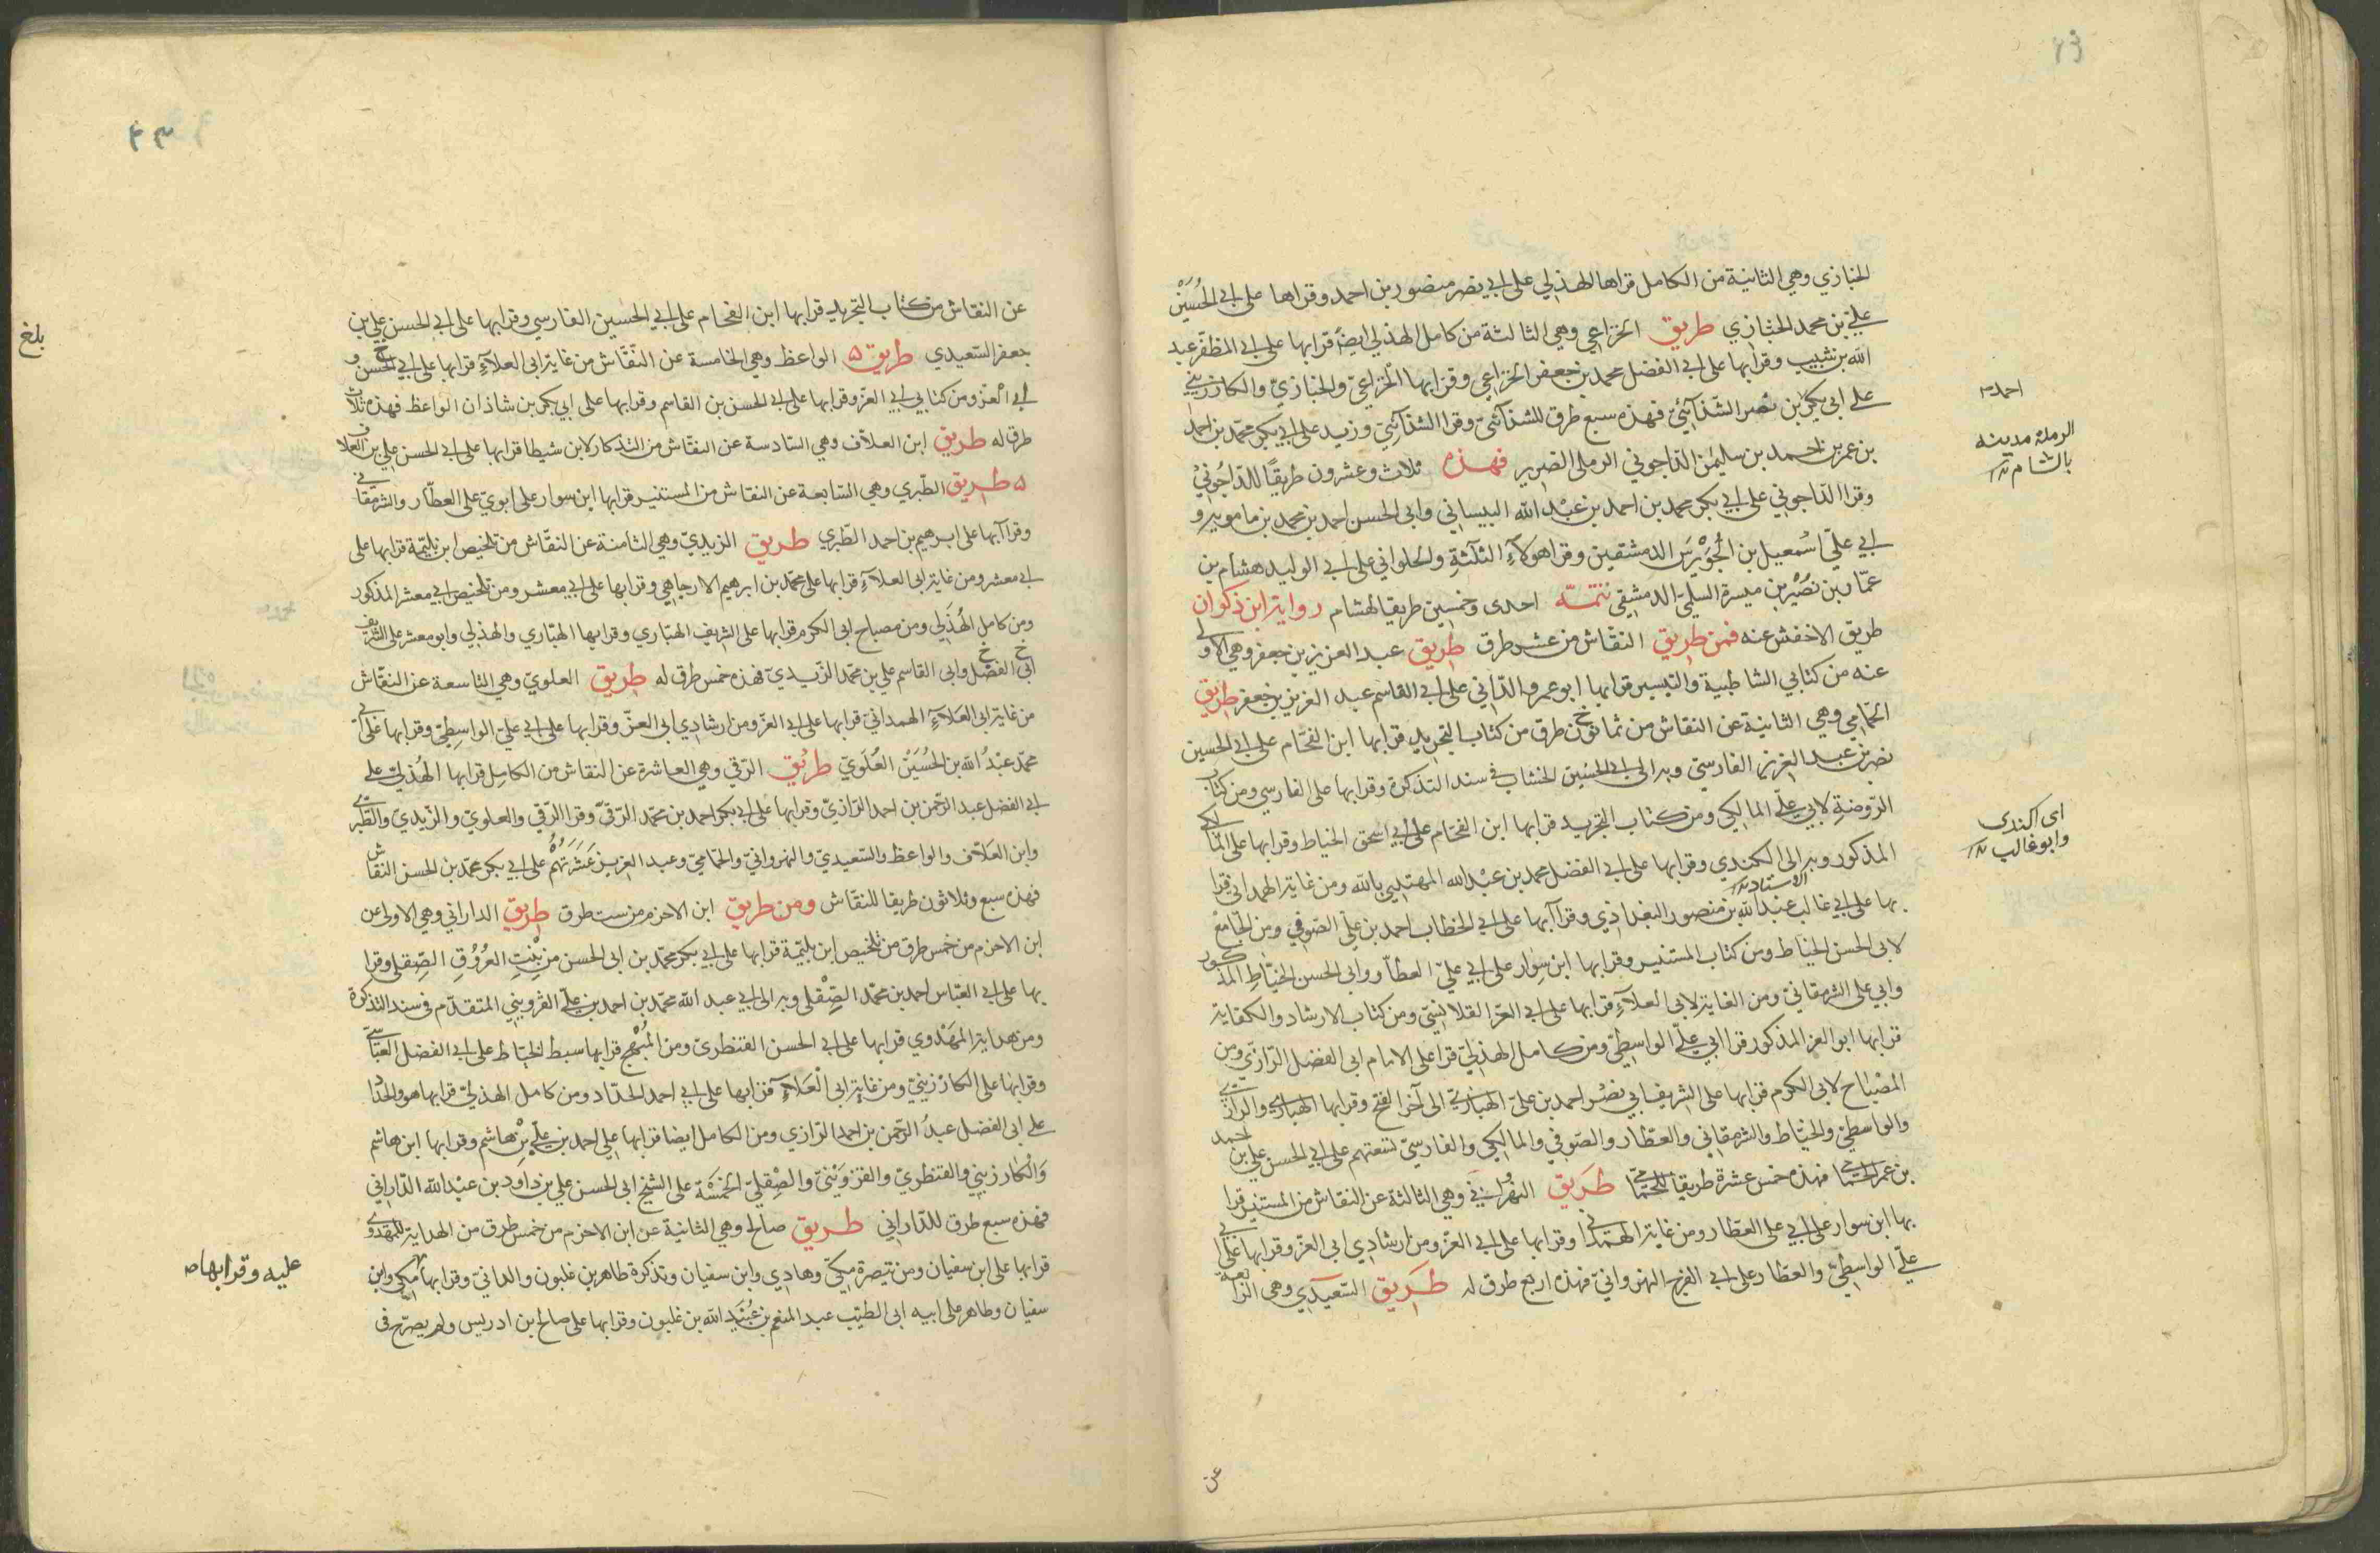 الخبازي وهي الثانية من الكامل قراها الهذلي على ابي نصر منصور بن احمد وقراها على ابي الحُسَيْن
عليّ بن محمد الخبازي طريق الخزاعي وهي الثالثة من كامل الهذلي ايضا قرابها على ابي المظفر عبد
الله بن شبيب وقرابها على ابي الفضل محمد بن جعفر الخزاعي وقرابها الخزاعيّ والخبازيّ والكارزيني
على ابي بكر بن نصر الشذآئيّ فهذه سبع طرق للشذآئيّ وقرا الشذآئيّ وزيد على ابي بكر محمد بن احمد
احمد
بن عمر بن احمد بن سليمٰن الداجوني الرملي الضرير فهذه ثلاث وعشرون طريقًا للداجُونيْ
الرملة مدينه
بالشام
وقرا الداجوني على ابي بكر محمد بن احمد بن عبْد الله البيساني وابي الحسن احمد بن محمد بن مامويه و
ابي عليّ اسمعيل بن الحُوَيْرَس الدمشقيين وقرا هولآء الثلثةِ والحلواني على ابي الوليد هشام بن
عمّار بن نصُيْر بن ميسرة السلميّ الدمشقي تتمّة احدى وخمسين طريقا لهشام رواية ابن ذكوان
طريق الاخفش عنه فمن طريق النقّاش من عشر طرق طريق عبد العزيز بن جعفر وهي الاولى
عنه من كتابي الشاطبية والتيسير قرابها ابو عمرو الدّاني على ابي القاسم عبد العزيز بن جعفر طريق
الحمّامي وهي الثانية عن النقاش من ثمانون طرق من كتاب التجريد قرابها ابن الفحّام على ابي الحسين
نصر بن عبد العزيز الفارسي وبه الى ابي الحسَين الخشاب في سند التذكرة وقرابها على الفارسي ومن كتاب
الرّوضةِ لابي عليّ المالكي ومن كتاب التجريد قرابها ابن الفحّام على ابي اسحق الخياط وقرابها على المالكي
المذكور وبه الى الكندي وقرابها على ابي الفضل محمد بن عبْد الله المهتدي بالله ومن غاية الهمداني قرا
اى الكندى
وابو غالب
الاستاد
بها على ابي غالب عبْد الله بن منصور البغداذي وقرآ ابها على ابي الخطاب احمد بن عليّ الصّوفي ومن الجامع
لابي الحسن الخياط ومن كتاب المستنير وقرابها ابن سِوار على ابي عليّ العطّار وابي الحسن الخيّاطِ المذكور
وابي على الشرمقانيّ ومن الغاية لابي العلآءِ قرابها على ابي العزّ القلانسيّ ومن كتاب الارشاد والكفاية
قرابها ابو العز المذكور قرا ابي عليّ الواسِطيّ ومن كامل الهذليّ قرا على الامام ابي الفضل الرّازيّ ومن
المصْبَاح لابي الكرم قرابها على الشريف ابي نصْر احمد بن عليّ الهبّاريّ الى آخر الفتح وقرابها الهبّاري والرازيّ
والواسطيّ والخيّاط والشرمقاني والعطّار والصّوفي والمالكي والفارسيّ تسعتهم على ابي الحسن علي بن احمد
بن عمر الحمّامي فهذه خمس عشرة طريقا للحمّامي طريق النهرُواني وهي الثالثة عن النقاش من المستنير قرا
بها ابن سوار على ابي على العطار ومن غاية الهمَدَاني وقرابها على ابي العزّ ومن ارشادي ابي العزّ وقرابها على ابي
عليّ الواسِطيّ والعطّار على ابي الفرج النهروانيّ فهذه اربع طرق له طريق السّعيدي وهي الرابعة
عن
عن النقاش من كتاب التجريد قرابها ابن الفحّام على ابي الحُسَين الفارسي وقرابها على ابي الحسن علي بن
بلغ
جعفر السّعيدي طريق ۵ الواعظ وهي الخامسة عن النّقّاش من غاية ابي العلآءِ قرابها على ابي الحسن و
ابي العزّ ومن كتابي ابي العزّ وقرابها على ابي الحسن بن القاسم وقرابها على ابي بكر بن شاذان الواعظ فهذه ثلاث
طرق له طريق ابن العلاّف وهي السّادسة عن النقّاش من التذكار لابن شيطا قرابها على ابي الحسن علي بن العلاف
۵ طريق الطّبري وهي السّابعة عن النقاش من المستنير قرابها ابن سوار على ابويْ على العطّار والشرمقاني
وقرآ آبها على ابرهيم بن احمد الطّبري طريق الزيديّ وهي الثامنة عن النقّاش من تلخيص ابن بليّمة قرابها على
ابي معشر ومن غاية ابي العلآءِ قرابها على محمّد بن ابرهيم الارجاهي وقرابها على ابي معشر ومن تلخيص ابي معشر المذكور
ومن كامل الهُذَلي ومن مصباح ابي الكرم قرابها على الشريف الهبّاري وقرابها الهبّاري والهذلي وابو معشر على الشريف
ابي الفضل وابي القاسم علي بن محمّد الزّيديّ فهذه خمس طرق له طريق العلويّ وهي التاسعة عن النقّاش
من غاية ابي العَلآءِ الهمداني قرابها على ابي العزّ ومن ارشادي ابي العزّ وقرابها على ابي عليّ الواسِطيّ وقرابها على ابي
محمّد عبْدُ الله بن الحُسَيْن العُلَويّ طريْق الرّقي وهي العاشرة عن النقاش من الكامِل قرابها الهُذليّ على
ابي الفضل عبد الرّحمن بن احمد الرّازيّ وقرابها على ابي بكر احمد بن محمّد الرّقيّ وقرا الرّقي والعلويّ والزّيدي والطّبريّ
وابن العَلاّف والواعظ والسّعيديّ والنهرواني والحمّاميّ وعبد العزيز عَشَرَتُهُمْ على ابي بكر محمّد بن الحسن النقاش
فهذه سبع وثلاثون طريقا للنقّاش ومن طريق ابن الاخرم من ست طرق طريق الداراني وهي الاولى عن
ابن الاخرم من خمس طرق من تلخيص ابن بليّمة قرابها على ابي بكر محمّد بن ابي الحسن من بنْتِ العرُوْقِ الصّقلي وقرا
بها على ابي العبّاس احمد بن محمّد الصِّقْلي وبه الى ابي عبد الله محمّد بن احمد بن عليّ القزويني المتقدّم في سند التذكرة
ومن هداية المهَدْوي قرابها على ابي الحسن القنطريّ ومن المُبْهج قرابها سبط الخيّاط على ابي الفضل العبّاسيّ
وقرابها على الكارزينيّ ومن غاية ابي الْعَلآءِ قرابها على ابي احمد الحدّاد ومن كامل الهذليّ قرابها هو والحدّاد
على ابي الفضل عبدُ الرّحمن بن احمد الرّازي ومن الكامل ايضا قرابها على احمد بن عليّ بْن هاشم وقرابها ابن هاشم
وَالكارزيني والقنطريّ والقزوَيْنيّ والصِّقليّ الخمْسَة على الشيخ ابي الحسن علي بن داود بن عبْد الله الدّاراني
فهذه سبع طرق للدّاراني طريق صالح وهي الثانية عن ابن الاخرم من خمس طرق من الهداية للمهدوي
قرابها على ابن سفيان ومن تبصرة مكيّ وهادي وابن سفيان وتذكرة طاهر بن غلبون والدانيّ وقرابها مكي وابن
عليه وقرابها
سفيان وطاهر على ابيه ابي الطيّب عبد المنعم بن عُبَيْد الله بن غلبون وقرابها على صالح بن ادريس ولم يصرّح في